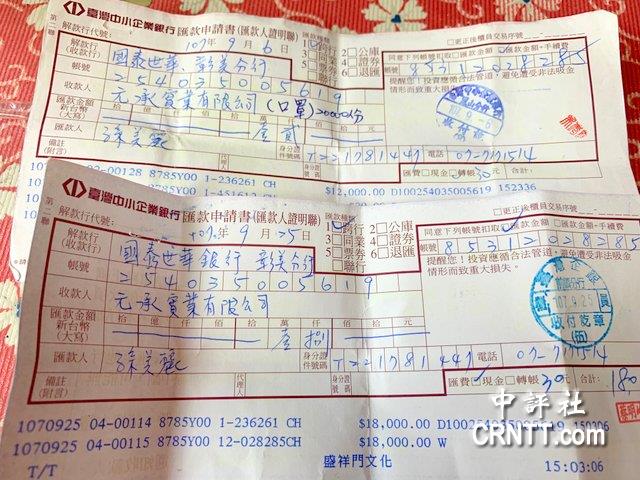 臺灣中小企業銀行 匯款申請書(匯款人證明聯)
第二聯
107年9月6日
解款行代號:
解款行(收款行) 國泰世華 彰美分行
帳號 254035005619
收款人 元承實業有限公司(口罩)20000份
匯款金額 新台幣(大寫) 壹貳
匯款人 孫美麗
身分證件號碼 T221781447 電話 07-7771514
備註(附言)
匯款種類 1 2公庫 3同業 4證券 5票券 6退匯
□更正後櫃員交易序號
同意下列帳號扣取□匯款金額□手續費
85312028285
提醒您!投資應循合法管道,避免遭受非法吸金情形而致重大損失。
匯費□現金□轉帳30元 合計:
02-00128 8785Y00 1-236261 CH $12,000.00 D100254035005619 152336
臺灣中小企業銀行 匯款申請書(匯款人證明聯)
第二聯
107年9月25日
解款行代號:
解款行(收款行) 國泰世華銀行 彰美分行
帳號 254035005619
收款人 元承實業有限公司
匯款金額 新台幣(大寫) 壹捌
匯款人 孫美麗
身分證件號碼 T221781447 電話 07-7771514
備註(附言)
代理人
匯款種類 1 2公庫 3同業 4證券 5票券 6退匯
□更正後櫃員交易序號
同意下列帳號扣取□匯款金額□手續費
85312028285
提醒您!投資應循合法管道,避免遭受非法吸金情形而致重大損失。
107.9.25
收付訖章
(五)
匯費□現金□轉帳30元 合計:
1070925 04-00114 8785Y00 1-236261 CH $18,000.00 D100254035005619 150306
1070925 04-00115 8785Y00 12-028285 CH $18,000.00 W
T/T 盛祥門文化 15:03:06
中評社
CRNTT.com